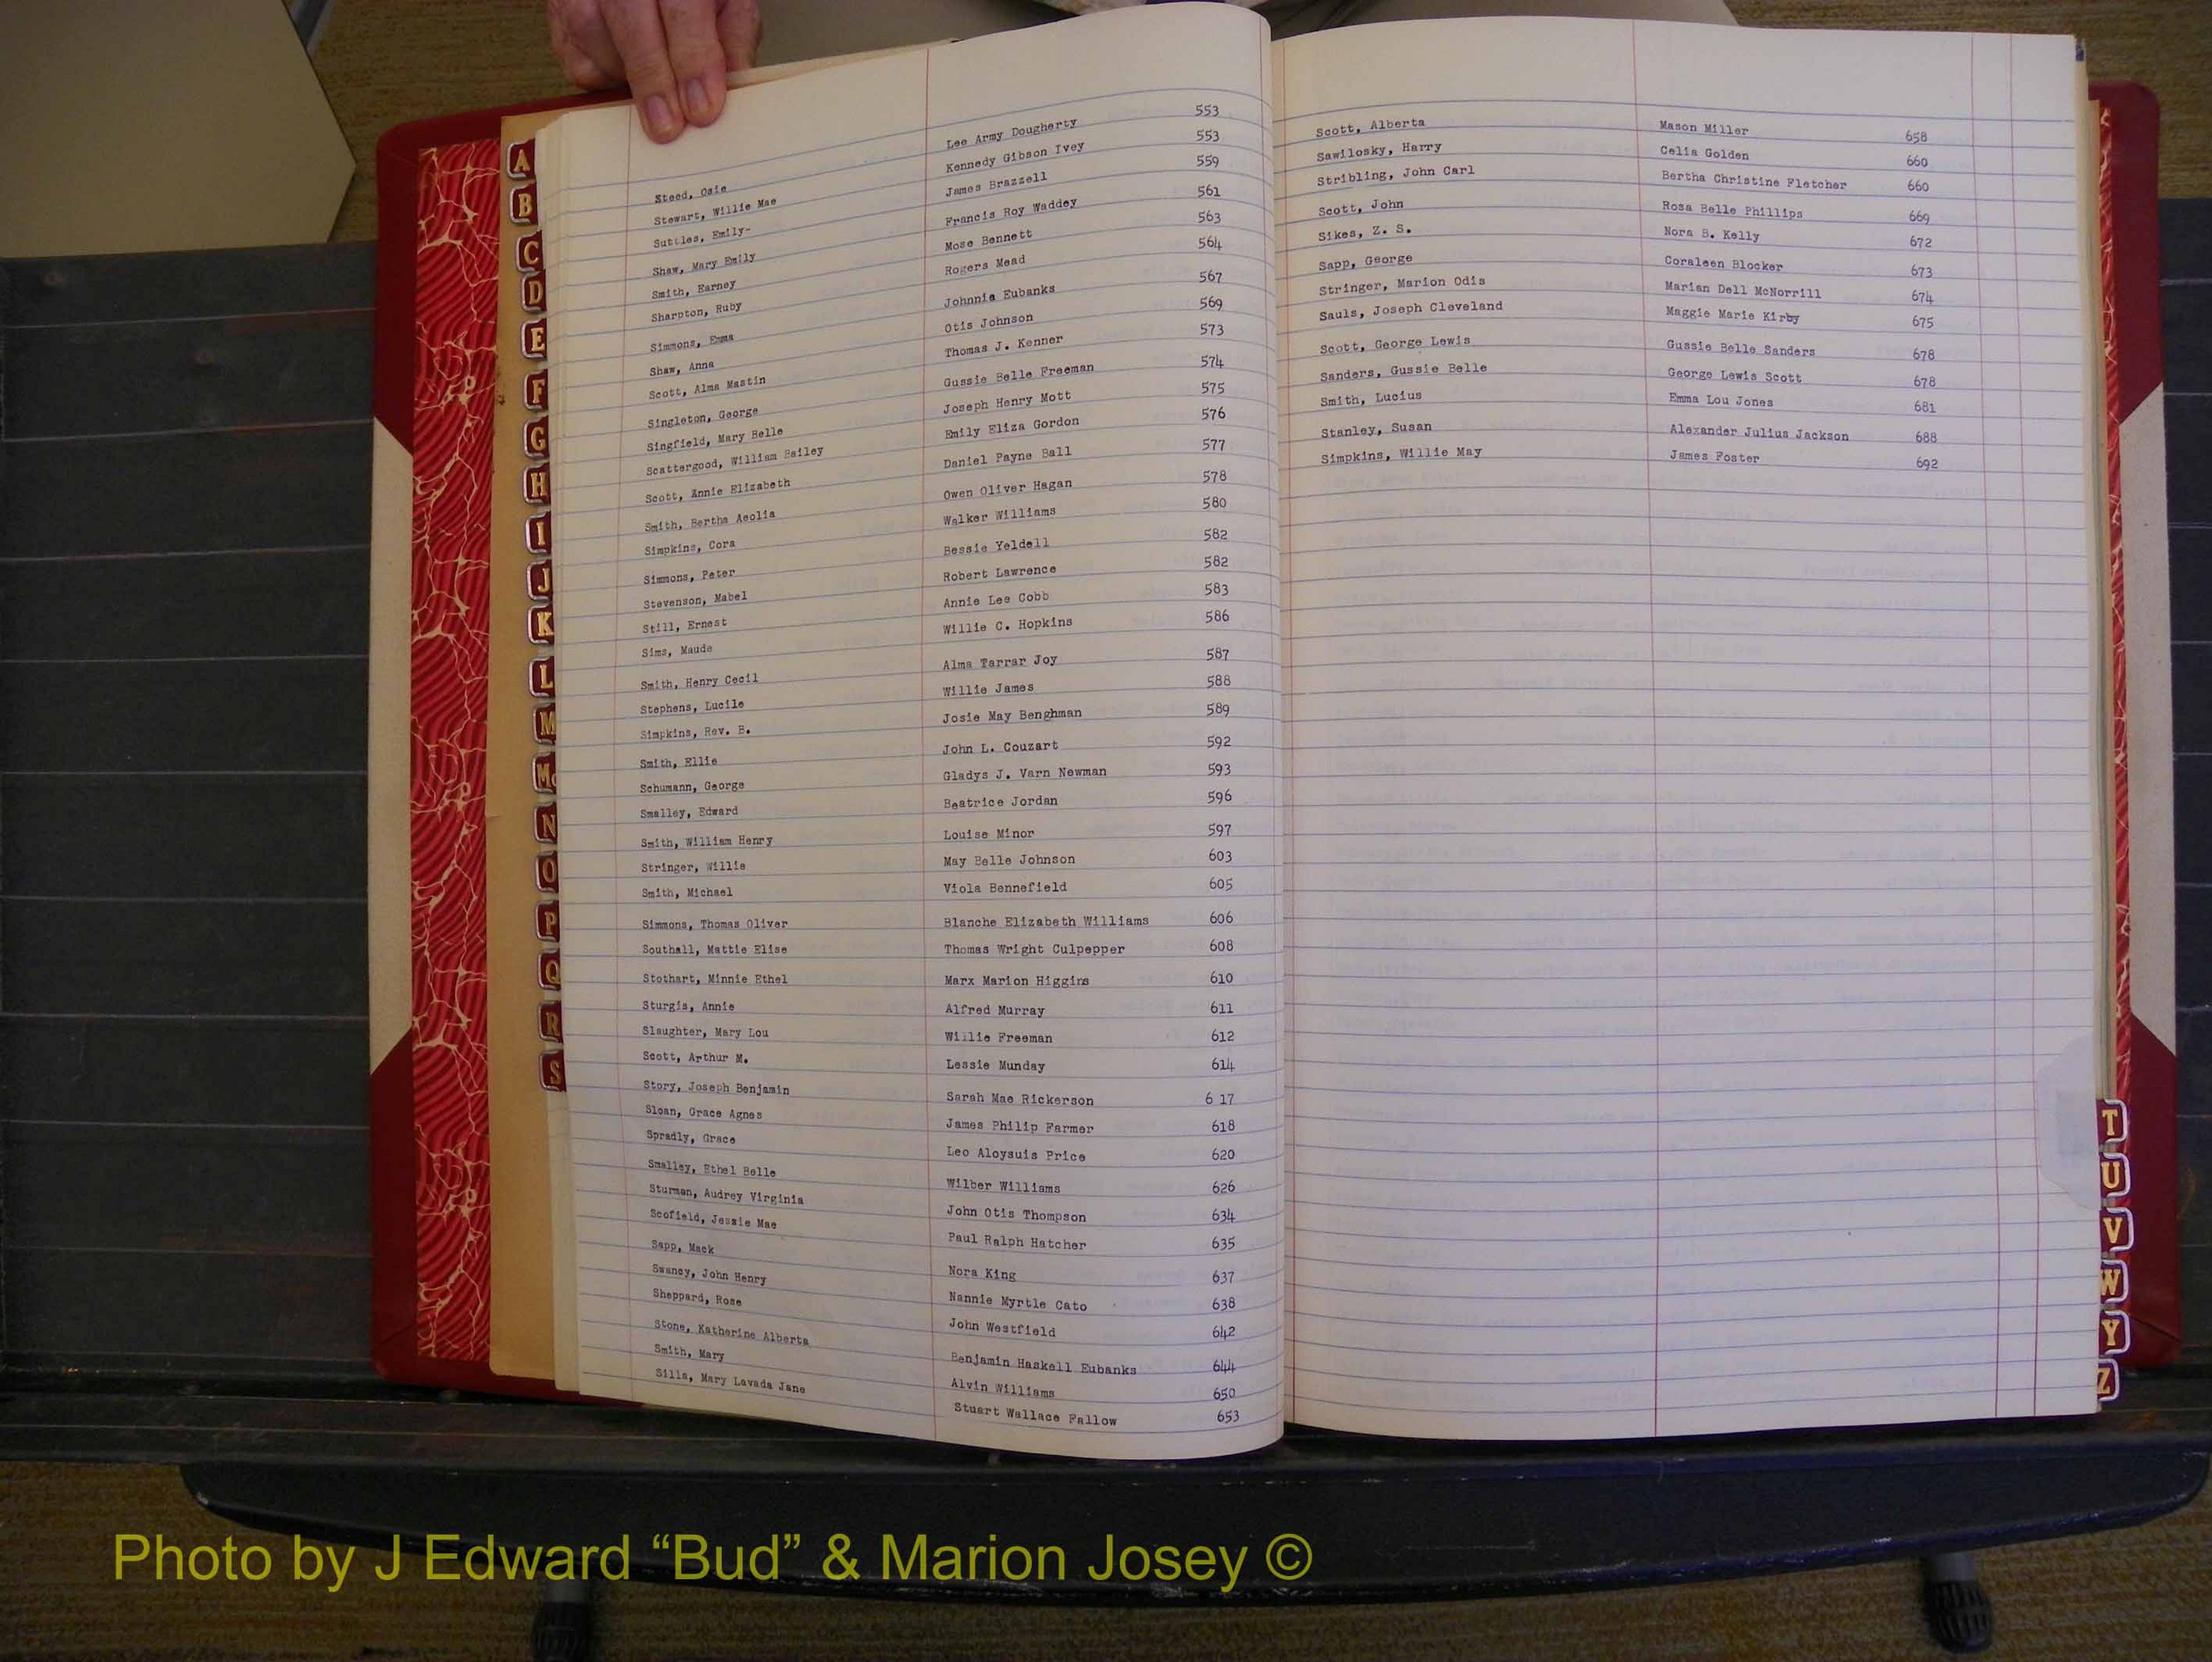 Steed, Osie Lee Army Dougherty 553
Stewart, Willie Mae Kennedy Gibson Ivey 553
Suttles, Emily- James Brazzell 559
Shaw, Mary Emily Francis Roy Waddey 561
Smith, Earney Mose Bennett 563
Sharpton, Ruby Rogers Mead 564
Simmons, Emma Johnnie Eubanks 567
Shaw, Anna Otis Johnson 569
Scott, Alma Mastin Thomas J. Kenner 573
Singleton, George Gussie Belle Freeman 574
Singfield, Mary Belle Joseph Henry Mott 575
Scattergood, William Bailey Emily Eliza Gordon 576
Scott, Annie Elizabeth Daniel Payne Ball 577
Smith, Bertha Aeolia Owen Oliver Hagan 578
Simpkins, Cora Walker Williams 580
Simmons, Peter Bessie Yeldell 582
Stevenson, Mabel Robert Lawrence 582
Still, Ernest Annie Lee Cobb 583
Sims, Maude Willie C. Hopkins 586
Smith, Henry Cecil Alma Tarrar Joy 587
Stephens, Lucile Willie James 588
Simpkins, Rev. B. Josie May Benghman 589
Smith, Ellie John L. Couzart 592
Schumann, George Gladys J. Varn Newman 593
Smalley, Edward Beatrice Jordan 596
Smith, William Henry Louise Minor 597
Stringer, Willie May Belle Johnson 603
Smith, Michael Viola Bennefield 605
Simmons, Thomas Oliver Blanche Elizabeth Williams 606
Southall, Mattie Elise Thomas Wright Culpepper 608
Stothart, Minnie Ethel Marx Marion Higgins 610
Sturgis, Annie Alfred Murray 611
Slaughter, Mary Lou Willie Freeman 612
Scott, Arthur M. Lessie Munday 614
Story, Joseph Benjamin Sarah Mae Rickerson 6 17
Sloan, Grace Agnes James Philip Farmer 618
Spradly, Grace Leo Aloysuis Price 620
Smalley, Ethel Belle Wilber Williams 626
Sturman, Audrey Virginia John Otis Thompson 634
Scofield, Jessie Mae Paul Ralph Hatcher 635
Sapp, Mack Nora King 637
Swancy, John Henry Nannie Myrtle Cato 638
Sheppard, Rose John Westfield 642
Stone, Katherine Alberta Benjamin Haskell Eubanks 644
Smith, Mary Alvin Williams 650
Sills, Mary Lavada Jane Stuart Wallace Fallow 653
Scott, Alberta Mason Miller 658
Sawilosky, Harry Celia Golden 660
Stribling, John Carl Bertha Christine Fletcher 660
Scott, John Rosa Belle Phillips 669
Sikes, Z. S. Nora B. Kelly 672
Sapp, George Coraleen Blocker 673
Stringer, Marion Odis Marian Dell McNorrill 674
Sauls, Joseph Cleveland Maggie Marie Kirby 675
Scott, George Lewis Gussie Belle Sanders 678
Sanders, Gussie Belle George Lewis Scott 678
Smith, Lucius Emma Lou Jones 681
Stanley, Susan Alexander Julius Jackson 688
Simpkins, Willie May James Foster 692
A
B
C
D
E
F
G
H
I
J
K
L
M
Mc
N
O
P
Q
R
S
T
U
V
W
Y
Z
Photo by J Edward “Bud” & Marion Josey ©